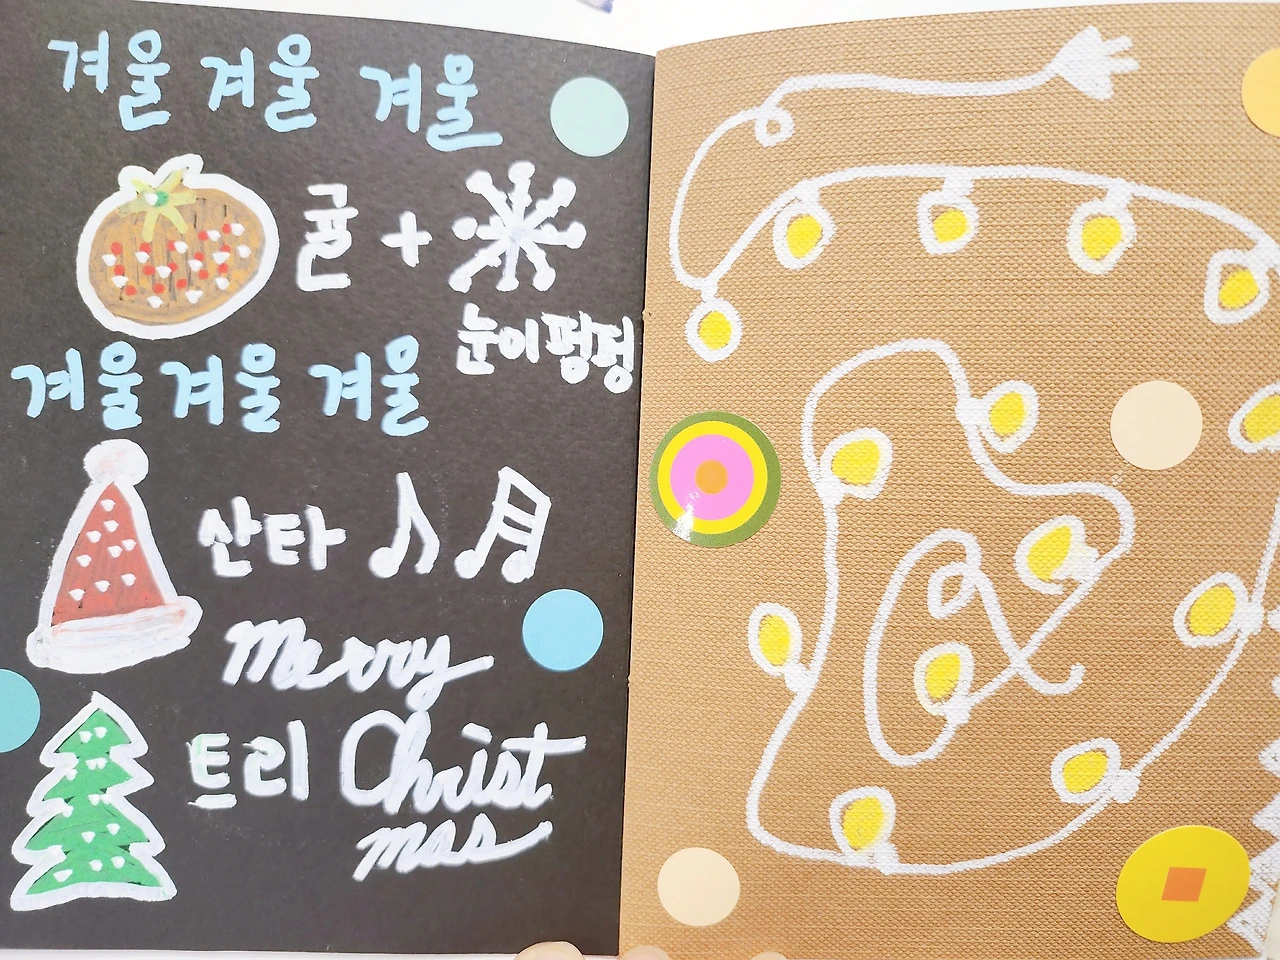 겨울 겨울 겨울
귤 +
눈이 펑펑
겨울 겨울 겨울
산타
Merry
트리 Christ
mas